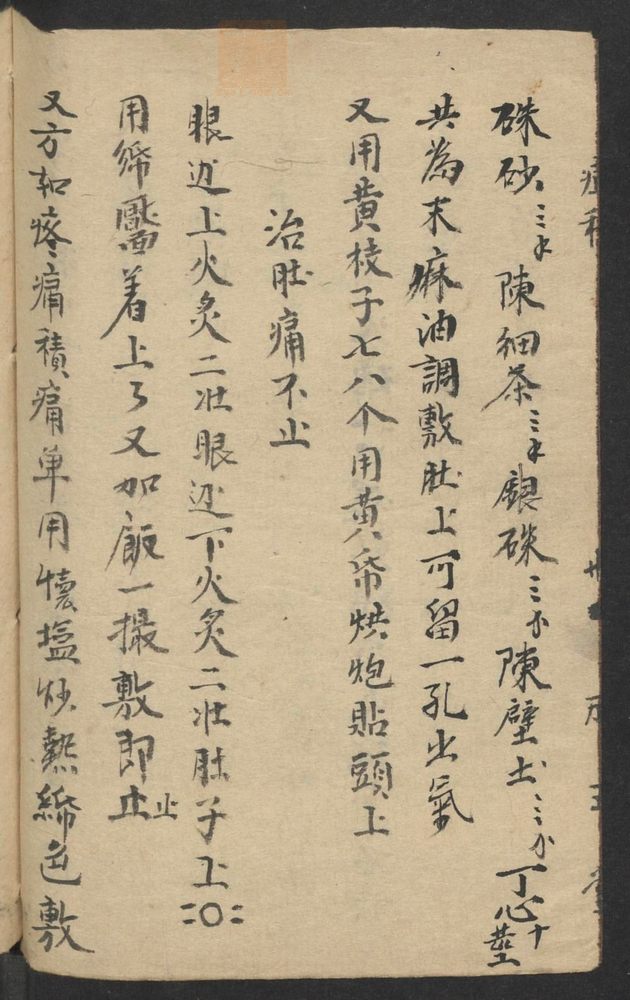 硃砂三卜 陳細茶三卜 銀硃三分 陳壁土三分 丁心十
共為末麻油調敷肚上可留一孔出氣
又用黄枝子七八个用黄帋烘炮貼頭上
治肚痛不止
眼边上火炙二壮眼边下火炙二壮肚子上
用綿着上了又加飯一撮敷即止
止
又方如疼痛積痛单用塩炒熱綿包敷